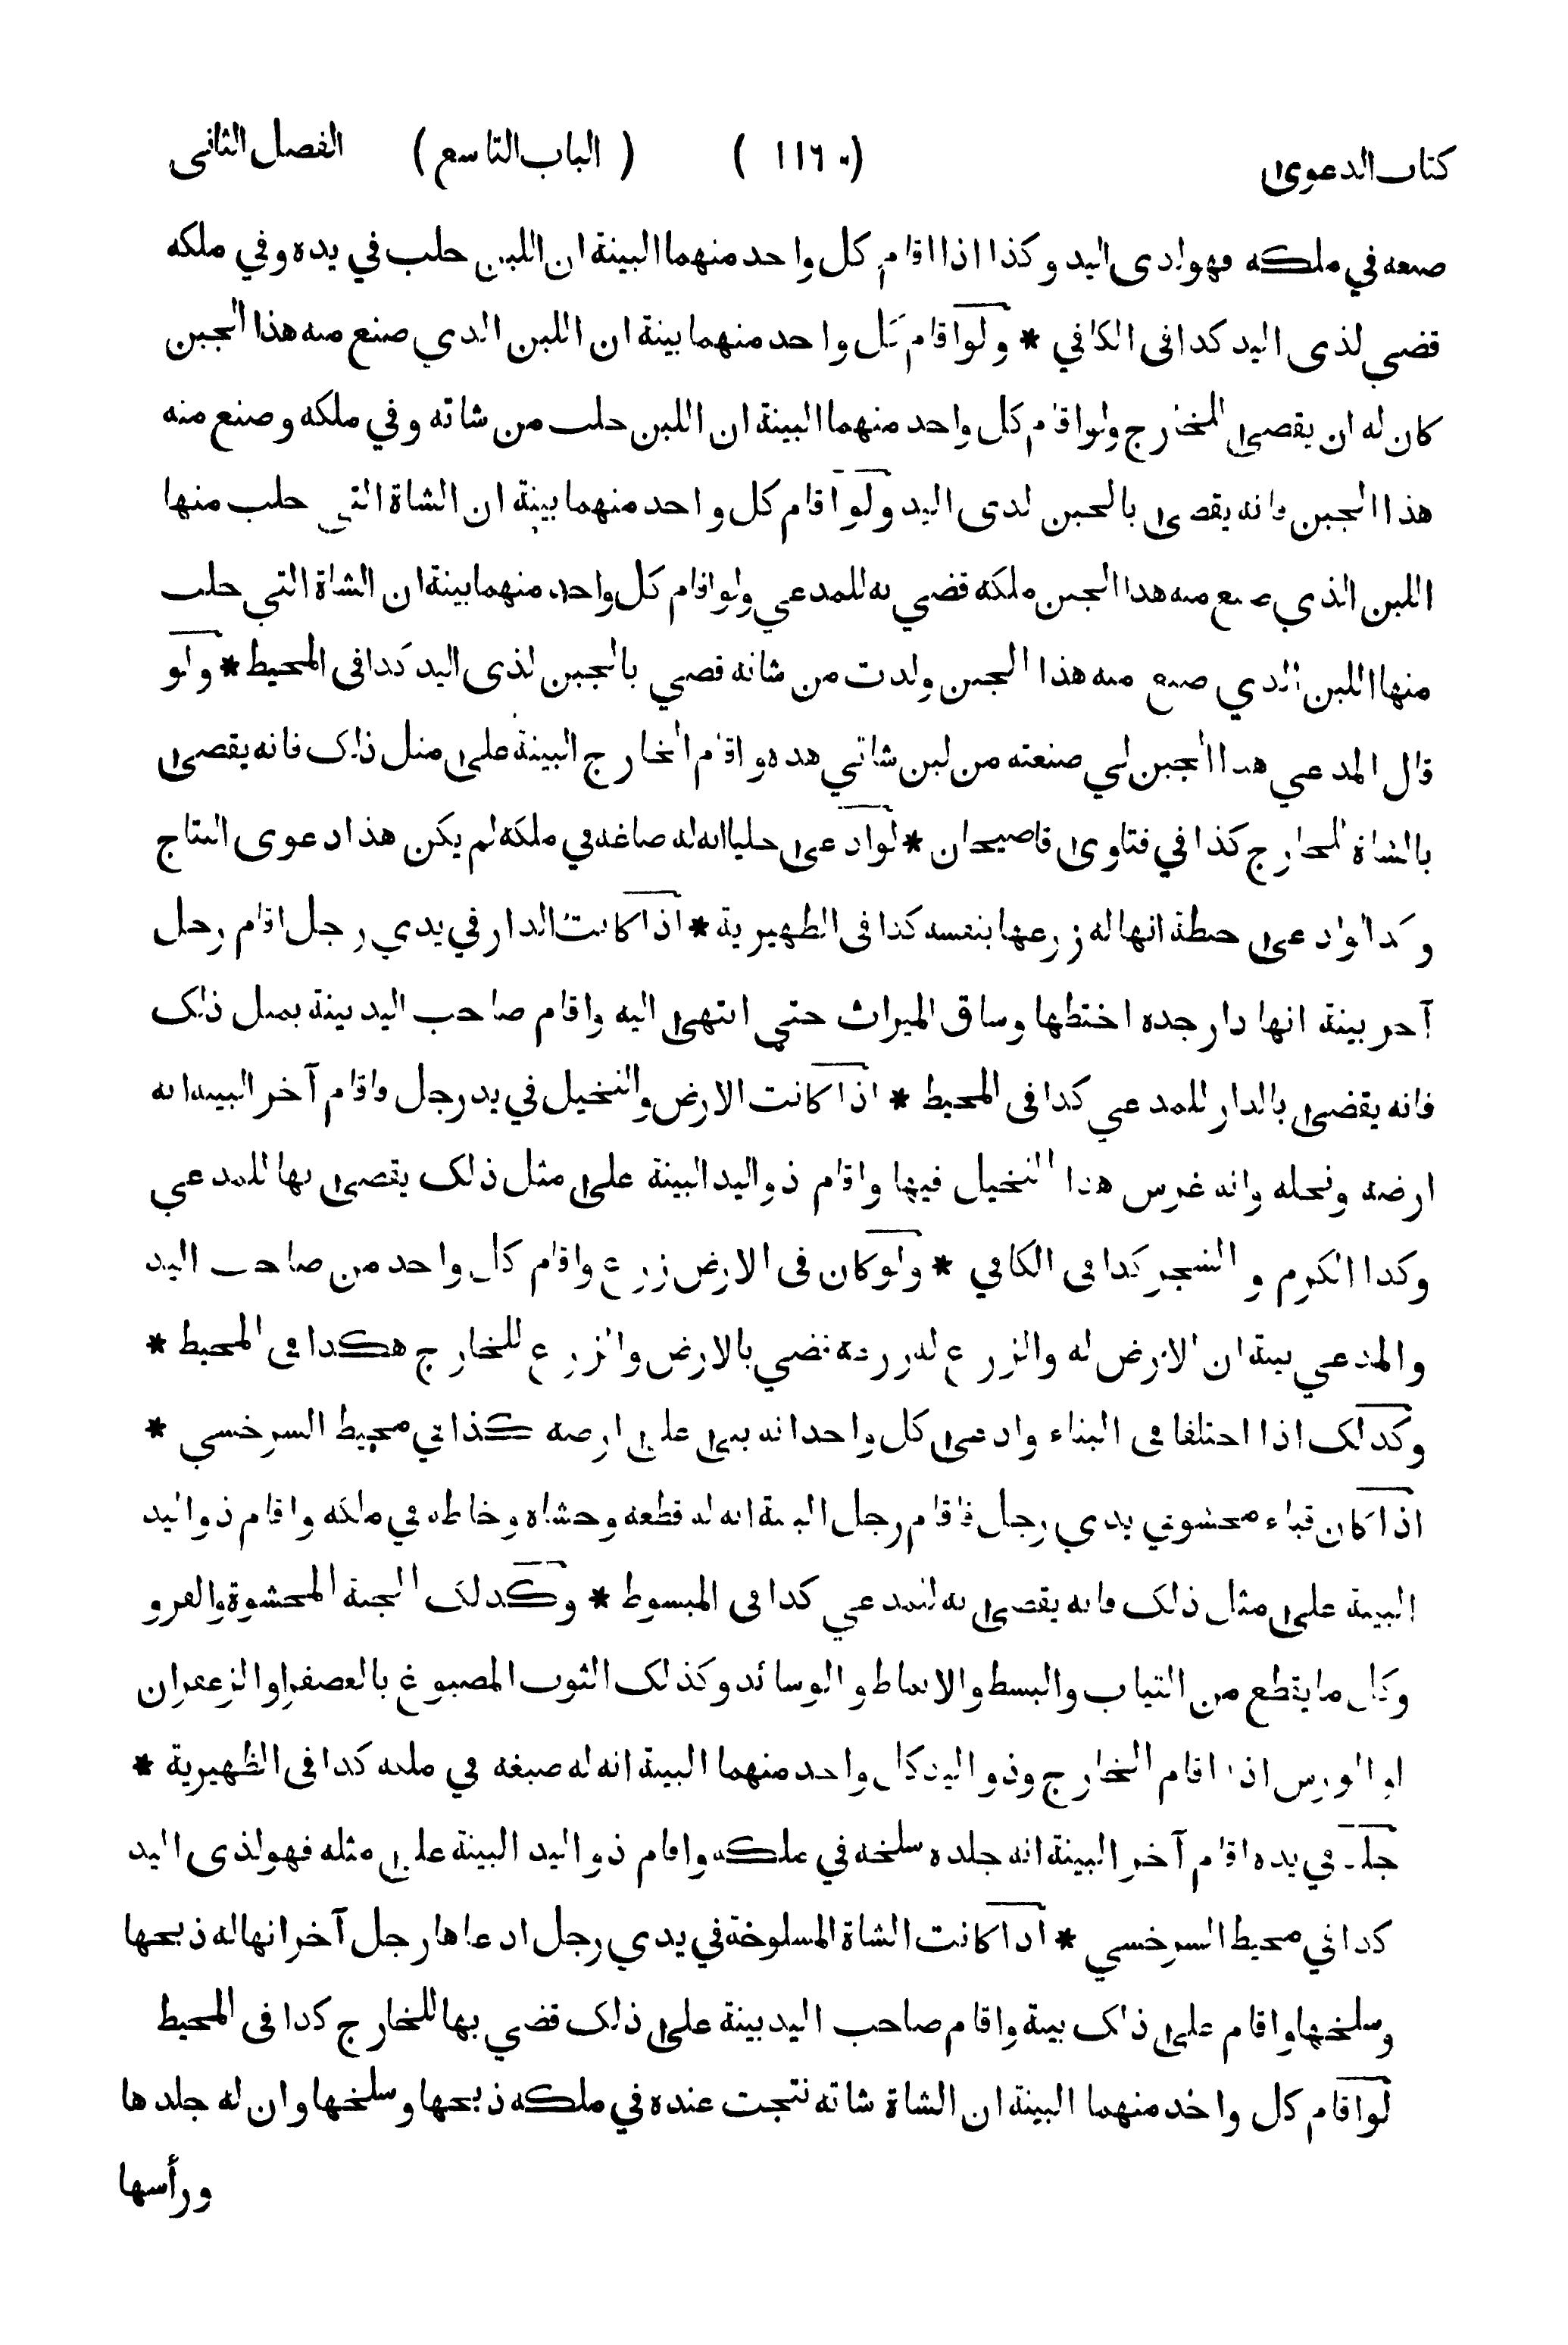 كتاب الدعوى ( ١١٦٠ ) ( الباب التاسع ) الفصل الثاني
صنعه في ملكه فهو لذى اليد وكذا اذا اقام كل واحد منهما البينة ان اللبن حلب في يده وفي ملكه
قضي لذى اليد كذا فى الكافي * ولو اقام كل واحد منهما بينة ان اللبن الذي صنع منه هذا الجبن
كان له ان يقضى للخارج ولو اقام كل واحد منهما البينة ان اللبن حلب من شاته وفي ملكه وصنع منه
هذا الجبن فانه يقضى بالجبن لذى اليد ولو اقام كل واحد منهما بينة ان الشاة التي حلب منها
اللبن الذي صنع منه هذا الجبن ملكه قضي به للمدعي ولو اقام كل واحد منهما بينة ان الشاة التي حلب
منها اللبن الذي صنع منه هذا الجبن ولدت من شاته قضي بالجبن لذى اليد كذا فى المحيط * ولو
قال المدعي هذا الجبن لي صنعته من لبن شاتي هذه واقام الخارج البينة على مثل ذلك فانه يقضى
بالشاة للخارج كذا في فتاوى قاضيخان * لو ادعى حليا انه له صاغه في ملكه لم يكن هذا دعوى النتاج
وكذا لو ادعى حنطة انها له زرعها بنفسه كذا فى الظهيرية * اذا كانت الدار في يدي رجل اقام رجل
آخر بينة انها دار جده اختطها وساق الميراث حتى انتهى اليه واقام صاحب اليد بينة بمثل ذلك
فانه يقضى بالدار للمدعي كذا فى المحيط * اذا كانت الارض والنخيل في يد رجل واقام آخر البينة انه
ارضه ونخله وانه غرس هذا النخيل فيها واقام ذو اليد البينة على مثل ذلك يقضى بها للمدعي
وكذا الكرم و الشجر كذا في الكافي * ولو كان فى الارض زرع واقام كل واحد من صاحب اليد
والمدعي بينة ان الارض له والزرع له زرعه قضي بالارض والزرع للخارج هكذا في المحيط *
وكذلك اذا اختلفا في البناء وادعى كل واحد انه بنى على ارضه كذا في محيط السرخسي *
اذا كان قباء محشو في يدي رجل فاقام رجل البينة انه له قطعه وحشاه وخاطه في ملكه واقام ذو اليد
البينة على مثل ذلك فانه يقضى به للمدعي كذا في المبسوط * وكذلك الجبة المحشوة والفرو
وكل ما يقطع من الثياب والبسط والانماط و الوسائد وكذلك الثوب المصبوغ بالعصفر او الزعفران
او الورس اذا اقام الخارج وذو اليد كل واحد منهما البينة انه له صبغه في ملكه كذا فى الظهيرية *
جلد في يده اقام آخر البينة انه جلده سلخه في ملكه واقام ذو اليد البينة على مثله فهو لذى اليد
كذا في محيط السرخسي * اذا كانت الشاة المسلوخة في يدي رجل ادعاها رجل آخر انها له ذبحها
وسلخها واقام على ذلك بينة واقام صاحب اليد بينة على ذلك قضي بها للخارج كذا فى المحيط
لو اقام كل واحد منهما البينة ان الشاة شاته نتجت عنده في ملكه ذبحها وسلخها وان له جلدها
ورأسها